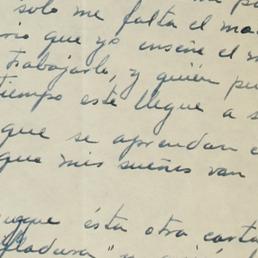 solo me falta el ma
rio que yo enseñe el m
Trabajarlo, y quién pu
tiempo este llegue a s
que se aprendan e
que mis sueños van
ésta otra carta